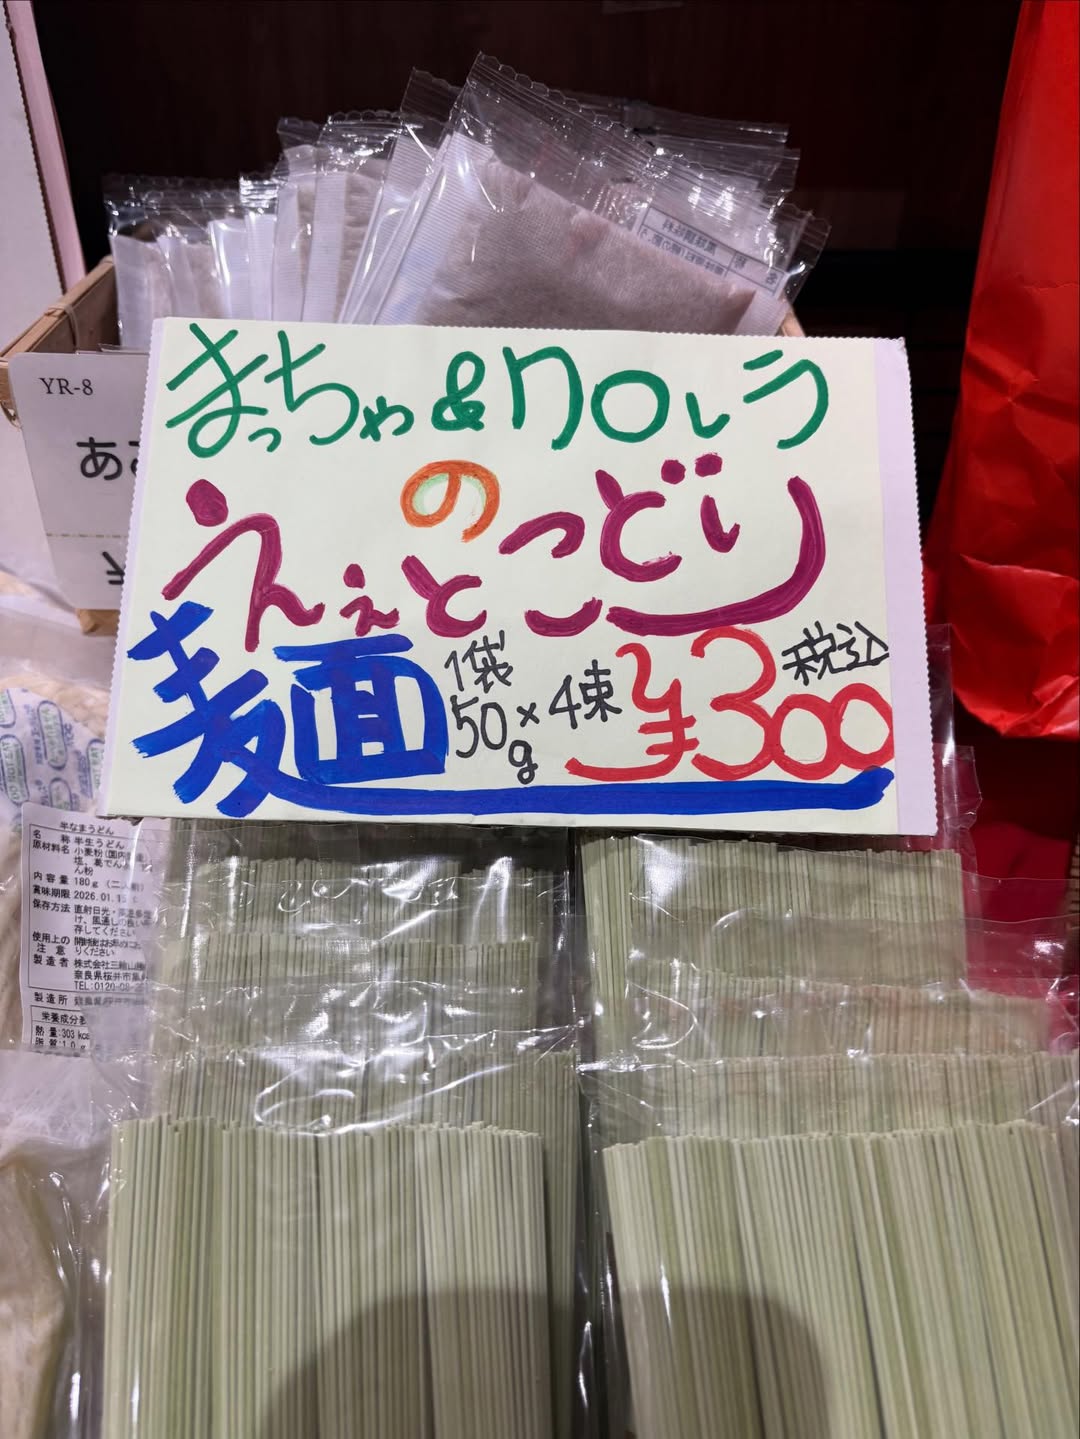 まっちゃ&クロレラ
の
ええとこどり
麺
1袋
50g×4束
¥300
税込
YR-8
あ
¥
半なまうどん
名 称 半生うどん
原材料名 小麦粉(国内製造
塩、葛でん
ん粉
内容量 180g(二人前)
賞味期限 2026.01.15
保存方法 直射日光・
け、風通しの良い
存してください
使用上の 開封後はお早めにお
注 意 りください
製造者 株式会社三輪山
奈良県桜井市
TEL:0120-08-
製造所
栄養成分
熱量:303 kca
脂質:1.0g